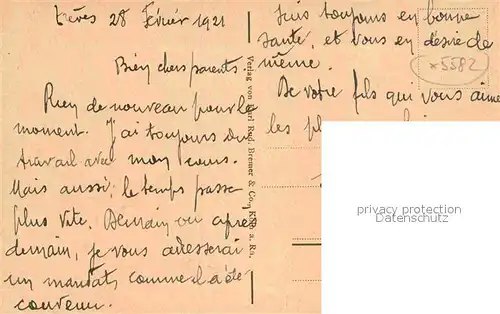 Trèves 28 Février 1921
Bien chers parents.
Rien de nouveau pour le
moment. J'ai toujours du
travail avec mon cours.
Mais aussi, le temps passe
plus vite. Demain ou après
demain, je vous adresserai
un mandat, comme il a été
convenu.
Suis toujours en bonne
santé, et vous en désire de
même.
De votre fils qui vous aime
les plus
*5582
Verlag von Karl Rud. Bremer & Co., Köln a. Rh.
privacy protection
Datenschutz